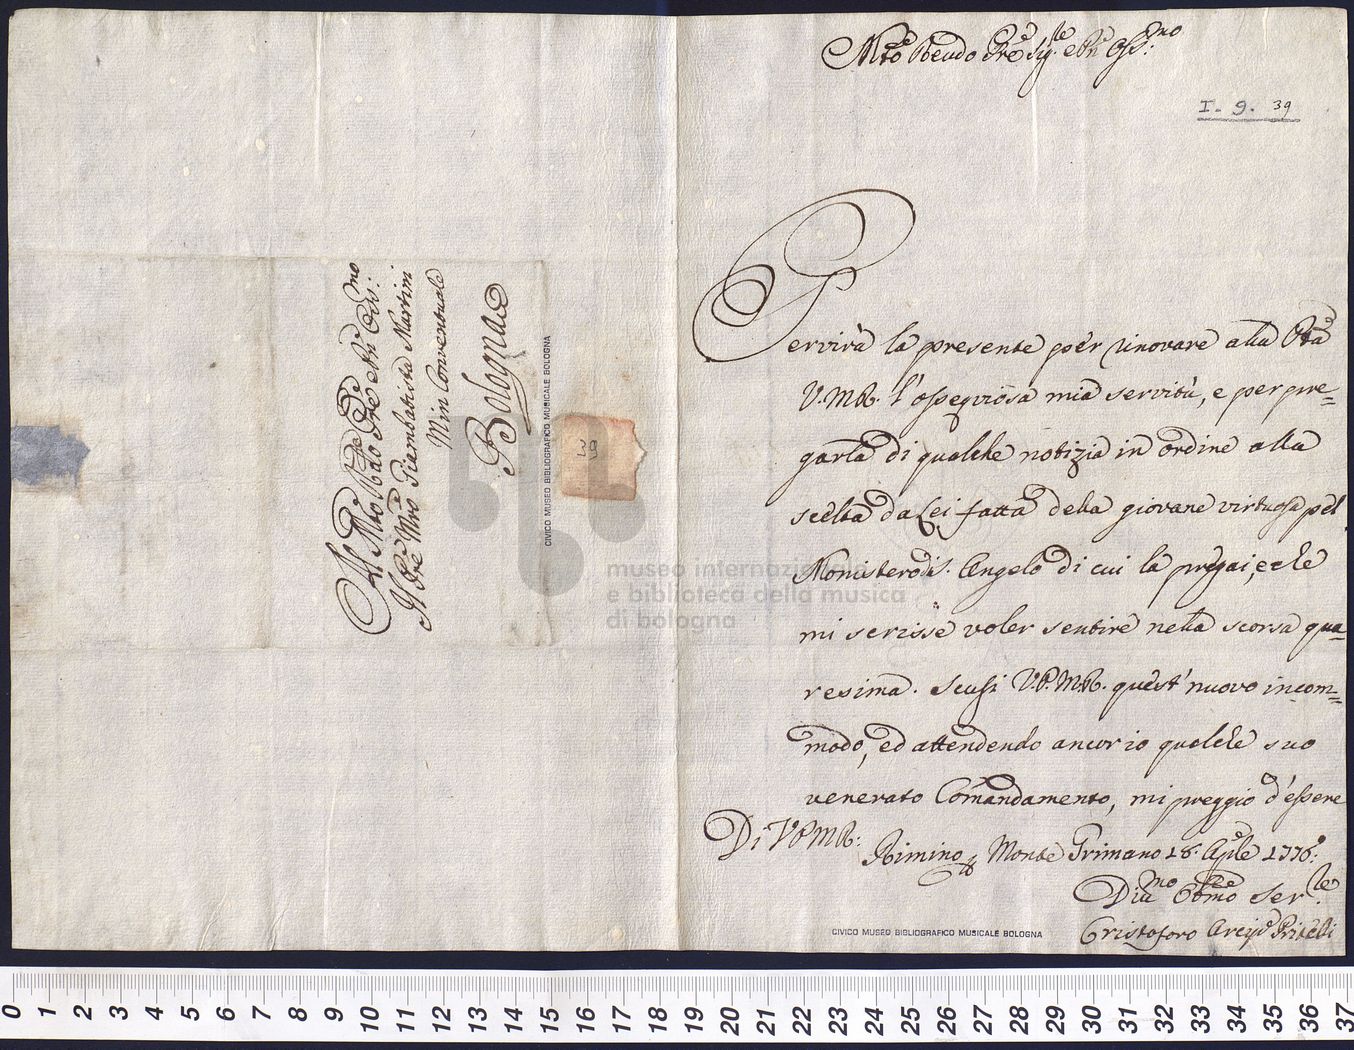 Mto Revdo Pre Sigre e Pn Ossmo:
I. 9. 39
Servirà la presente per rinovare alla Ptà
V. M. R. l'ossequiosa mia servitù, e per pre=
garla di qualche notizia in ordine alla
scelta da Lei fatta della giovane virtuosa pel
Monistero di S. Angelo di cui la pregai, e che
mi scrisse voler sentire nella scorsa qua=
resima. Scusi V. P. M. R. quest' nuovo incom=
modo, ed attendendo ancor io qualche suo
venerato Comandamento, mi preggio d'essere
Di V. P. M. R:
Rimino Monte Grimano 18. Aprle 1776:
Diumo Obmo Serle:
Cristoforo Arcip
Al Mto Rdo Pre
Il Pre Mro Giambatista Martini
Min Conventuale
Bologna
39
CIVICO MUSEO BIBLIOGRAFICO MUSICALE BOLOGNA
CIVICO MUSEO BIBLIOGRAFICO MUSICALE BOLOGNA
museo internazionale
e biblioteca della musica
di bologna
0 1 2 3 4 5 6 7 8 9 10 11 12 13 14 15 16 17 18 19 20 21 22 23 24 25 26 27 28 29 30 31 32 33 34 35 36 37